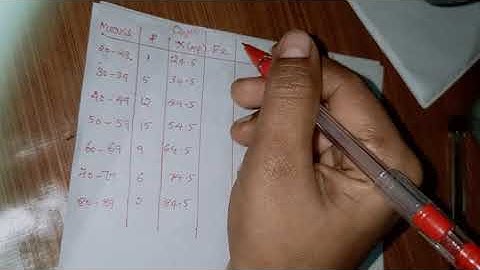 Marks f X(mp) Fx
20-29 1 24.5
30-39 5 34.5
40-49 12 44.5
50-59 15 54.5
60-69 9 64.5
70-79 6 74.5
80-89 2 84.5